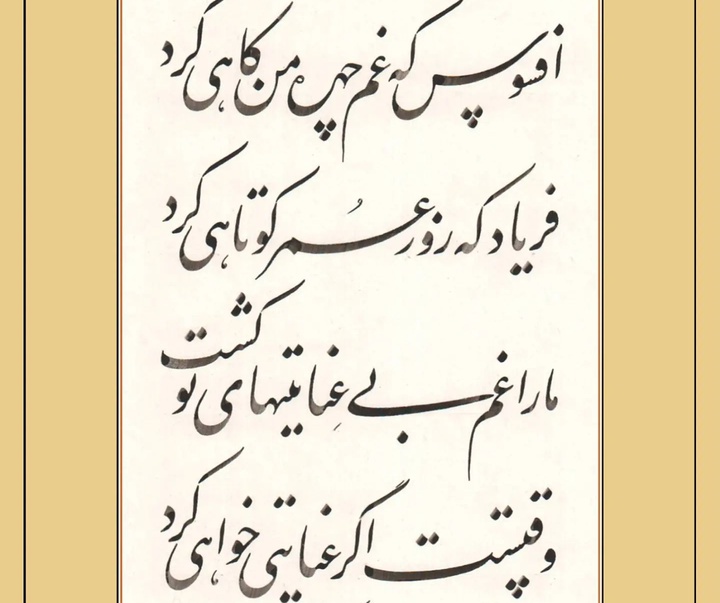 افسوس که غم چهره من کاهی کرد
فریاد که روز عُمر کوتاهی کرد
ما را غم بی عِنایتیهای تو کشت
وقتیست اگر عنایتی خواهی کرد